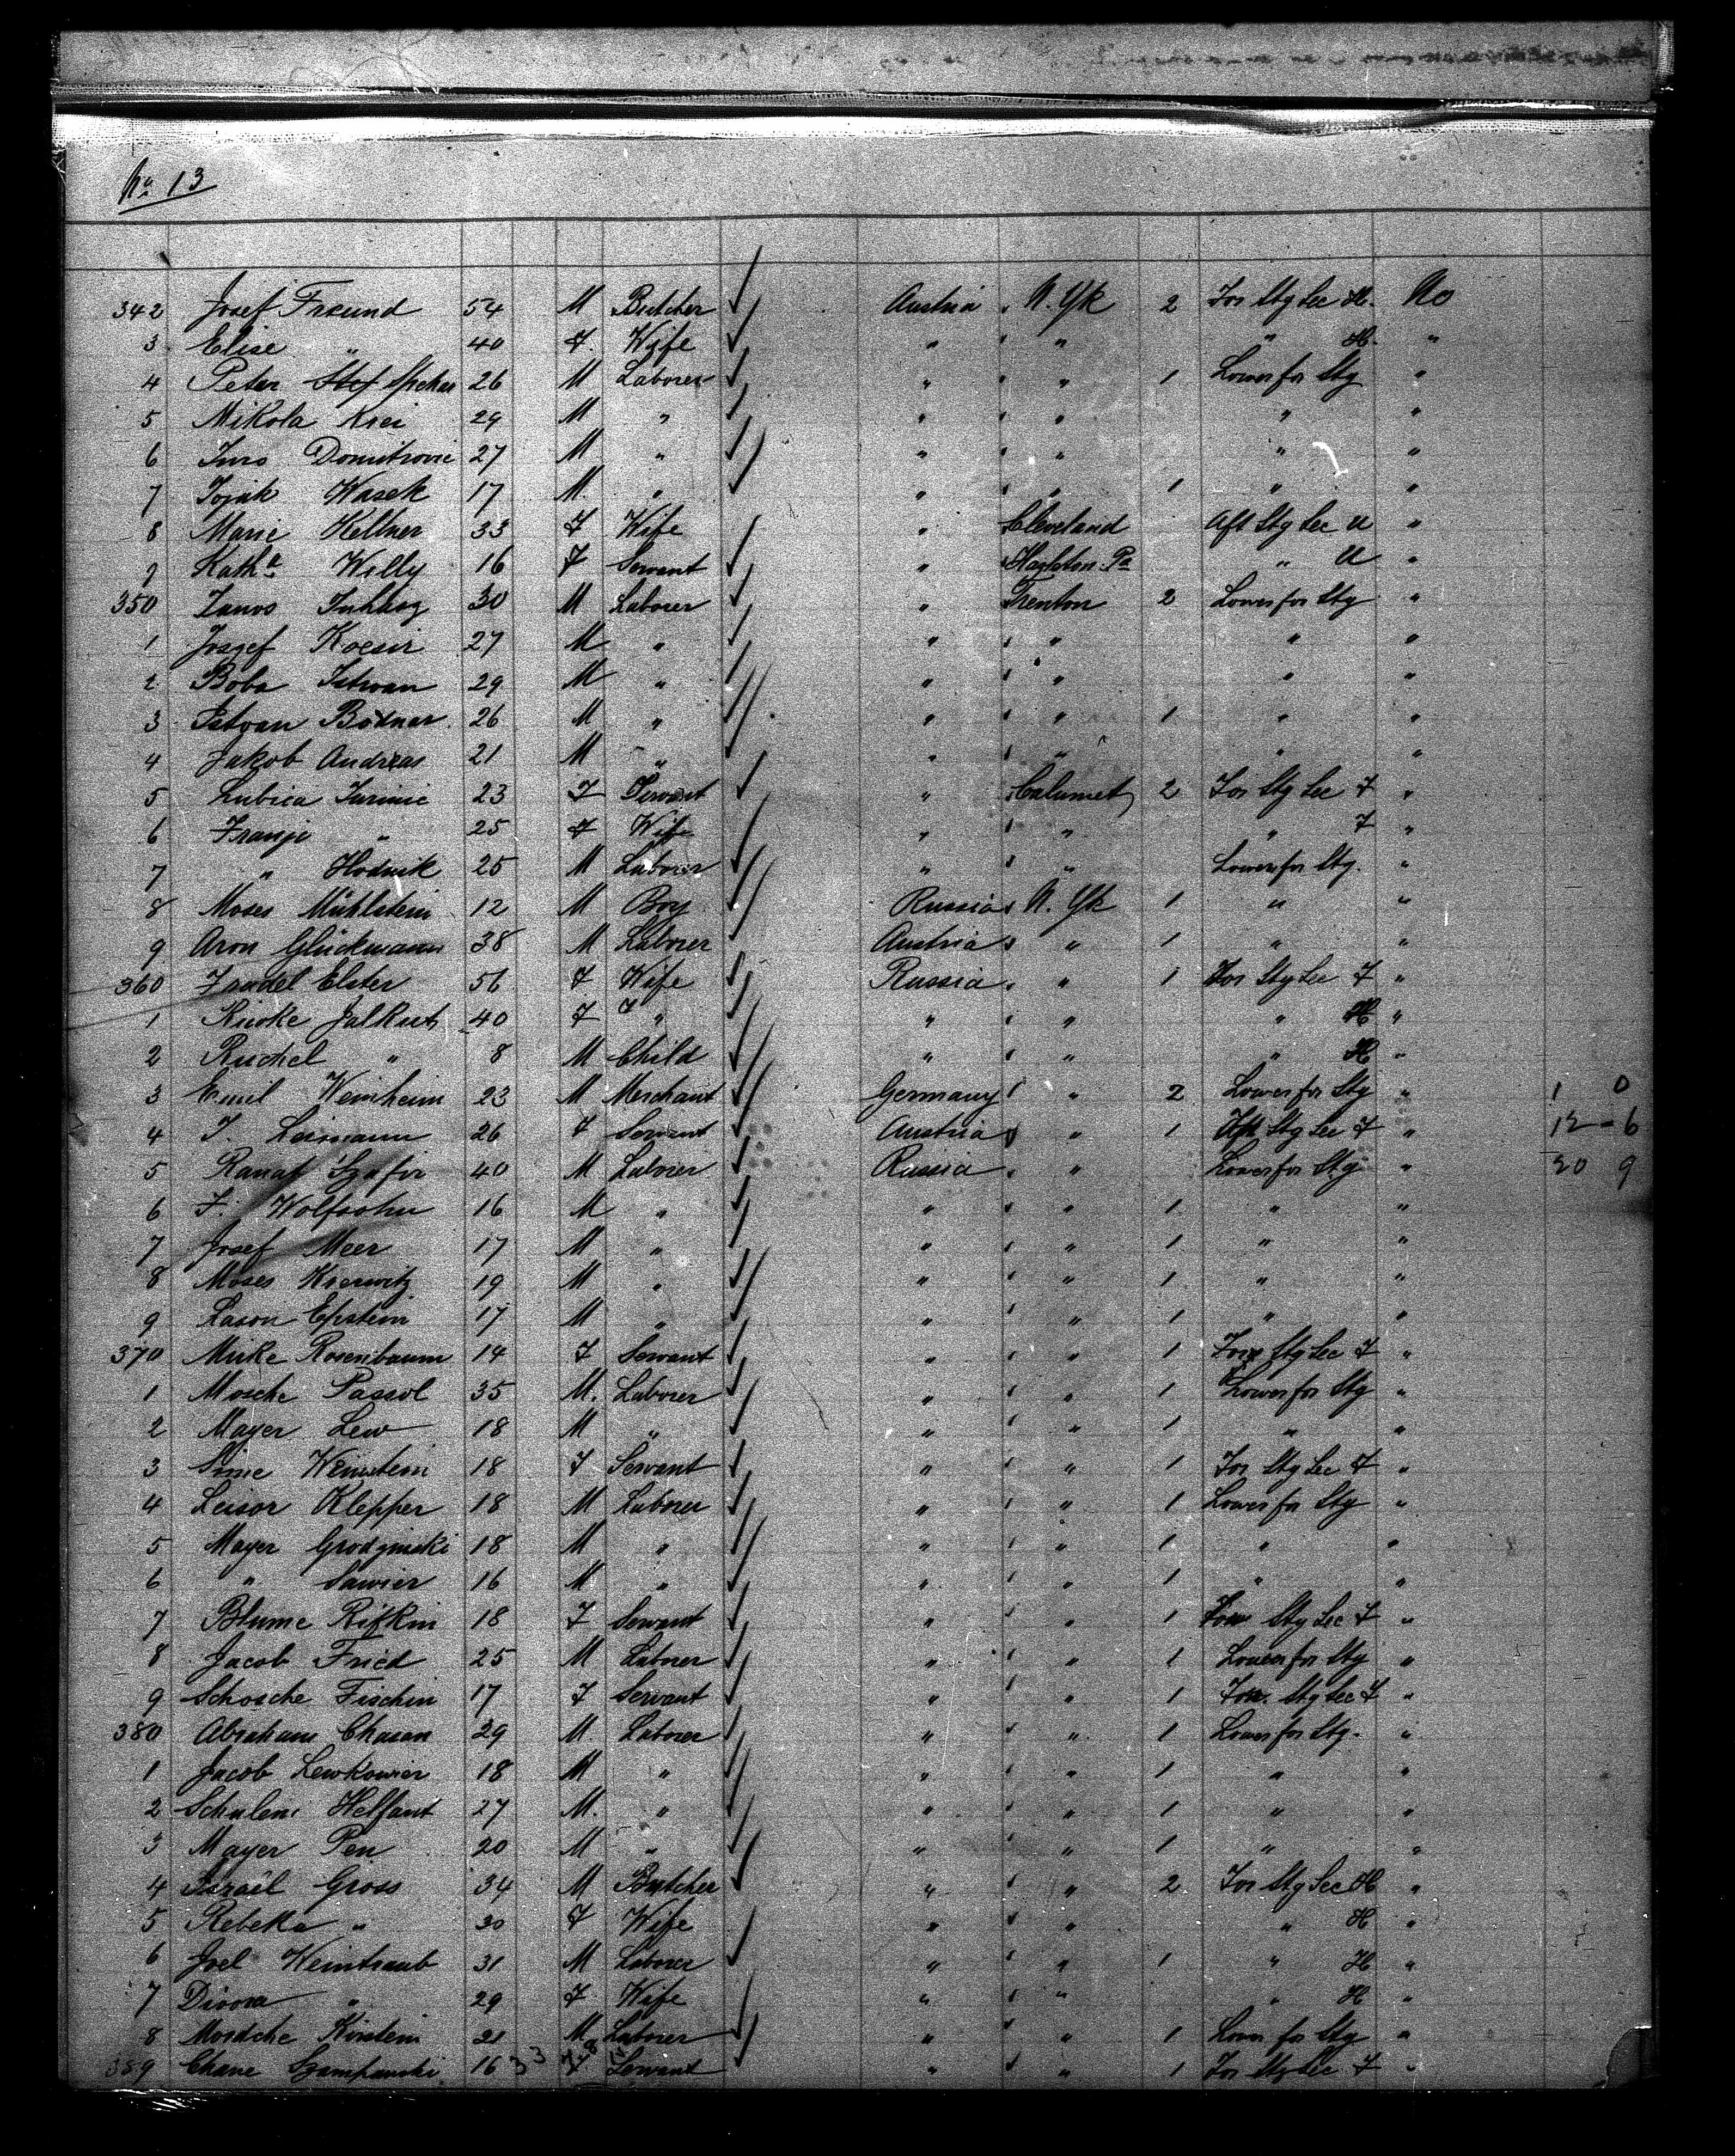 No 13
342 Josef Freund 54 M Butcher Austria N. Yk 2 For Stg Sec H. No
3 Elise " 40 F. Wife " " " H. "
4 Peter 26 M Laborer " " 1 Lower for Stg "
5 Mikola Krei 29 M " " " " "
6 Juro Domitrovic 27 M " " " " "
7 Wasek 17 M. " " " 1 " "
8 Marie Hellner 33 F Wife " Cleveland Aft Stg Sec U "
9 Katha Willy 16 F Servant " Hazleton Pa " U "
350 Janos 30 M Laborer " Trenton 2 Lower for Stg "
1 Jozsef Kocsir 27 M " " " " "
2 Boba Istvan 29 M " " " " "
3 Istvan Bodnar 26 M " " " 1 " "
4 Jakob Andreas 21 M " " " " "
5 Lubica Jurinic 23 F Servant " Calumet 2 For Stg Sec F "
6 Franje " 25 F Wife " " " F "
7 " Hodnik 25 M Laborer " " Lower for Stg. "
8 Moses Mühlstein 12 M Boy Russia N. Yk 1 " "
9 Aron Glückmann 38 M Laborer Austria " 1 " "
360 Fradel Elster 56 F Wife Russia " 1 For Stg Sec F "
1 Jalkut 40 F " " " " H "
2 Ruchel " 8 M Child " " " H "
3 Emil Weinheim 23 M Merchant Germany " 2 Lower for Stg " 1 0
4 J. Lermann 26 F Servant Austria " 1 Aft Stg Sec F " 12 - 6
5 Szafir 40 M Laborer Russia " Lower for Stg " 20 9
6 J. Wolfsohn 16 M " " " 1 " "
7 Josef Meer 17 M " " " 1 " "
8 Moses 19 M " " " 1 " "
9 Lason Epstein 17 M " " " 1 " "
370 Mirke Rosenbaum 14 F Servant " " 1 For Stg Sec F "
1 Mosche Passol 35 M. Laborer " " 1 Lower for Stg "
2 Mayer Lew 18 M " " " 1 " "
3 Sime Weinstein 18 F Servant " " 1 For Stg Sec F "
4 Leisor Klepper 18 M Laborer " " 1 Lower for Stg "
5 Mayer Grodzinski 18 M " " " 1 " "
6 " Sawier 16 M " " " 1 " "
7 Blume Rifkin 18 F Servant " " 1 For Stg Sec F "
8 Jacob Fried 25 M Laborer " " 1 Lower for Stg "
9 Schosche Fischin 17 F Servant " " 1 For. Stg Sec F "
380 Abraham Chasan 29 M. Laborer " " 1 Lower for Stg. "
1 Jacob Lewkowier 18 M " " " 1 " "
2 Schulem Helfant 27 M. " " " 1 " "
3 Mayer Pen 20 M " " " 1 " "
4 Israel Gross 34 M Butcher " " 2 For Stg Sec H "
5 Rebeka " 30 F Wife " " " H "
6 Joel Weintraub 31 M Laborer " " 1 " H "
7 Divora " 29 F Wife " " " H "
8 Mordche Kirstein 21 M Laborer " " 1 Lower for Stg "
389 Chane Szampanski 16 F Servant " " 1 For Stg Sec F "